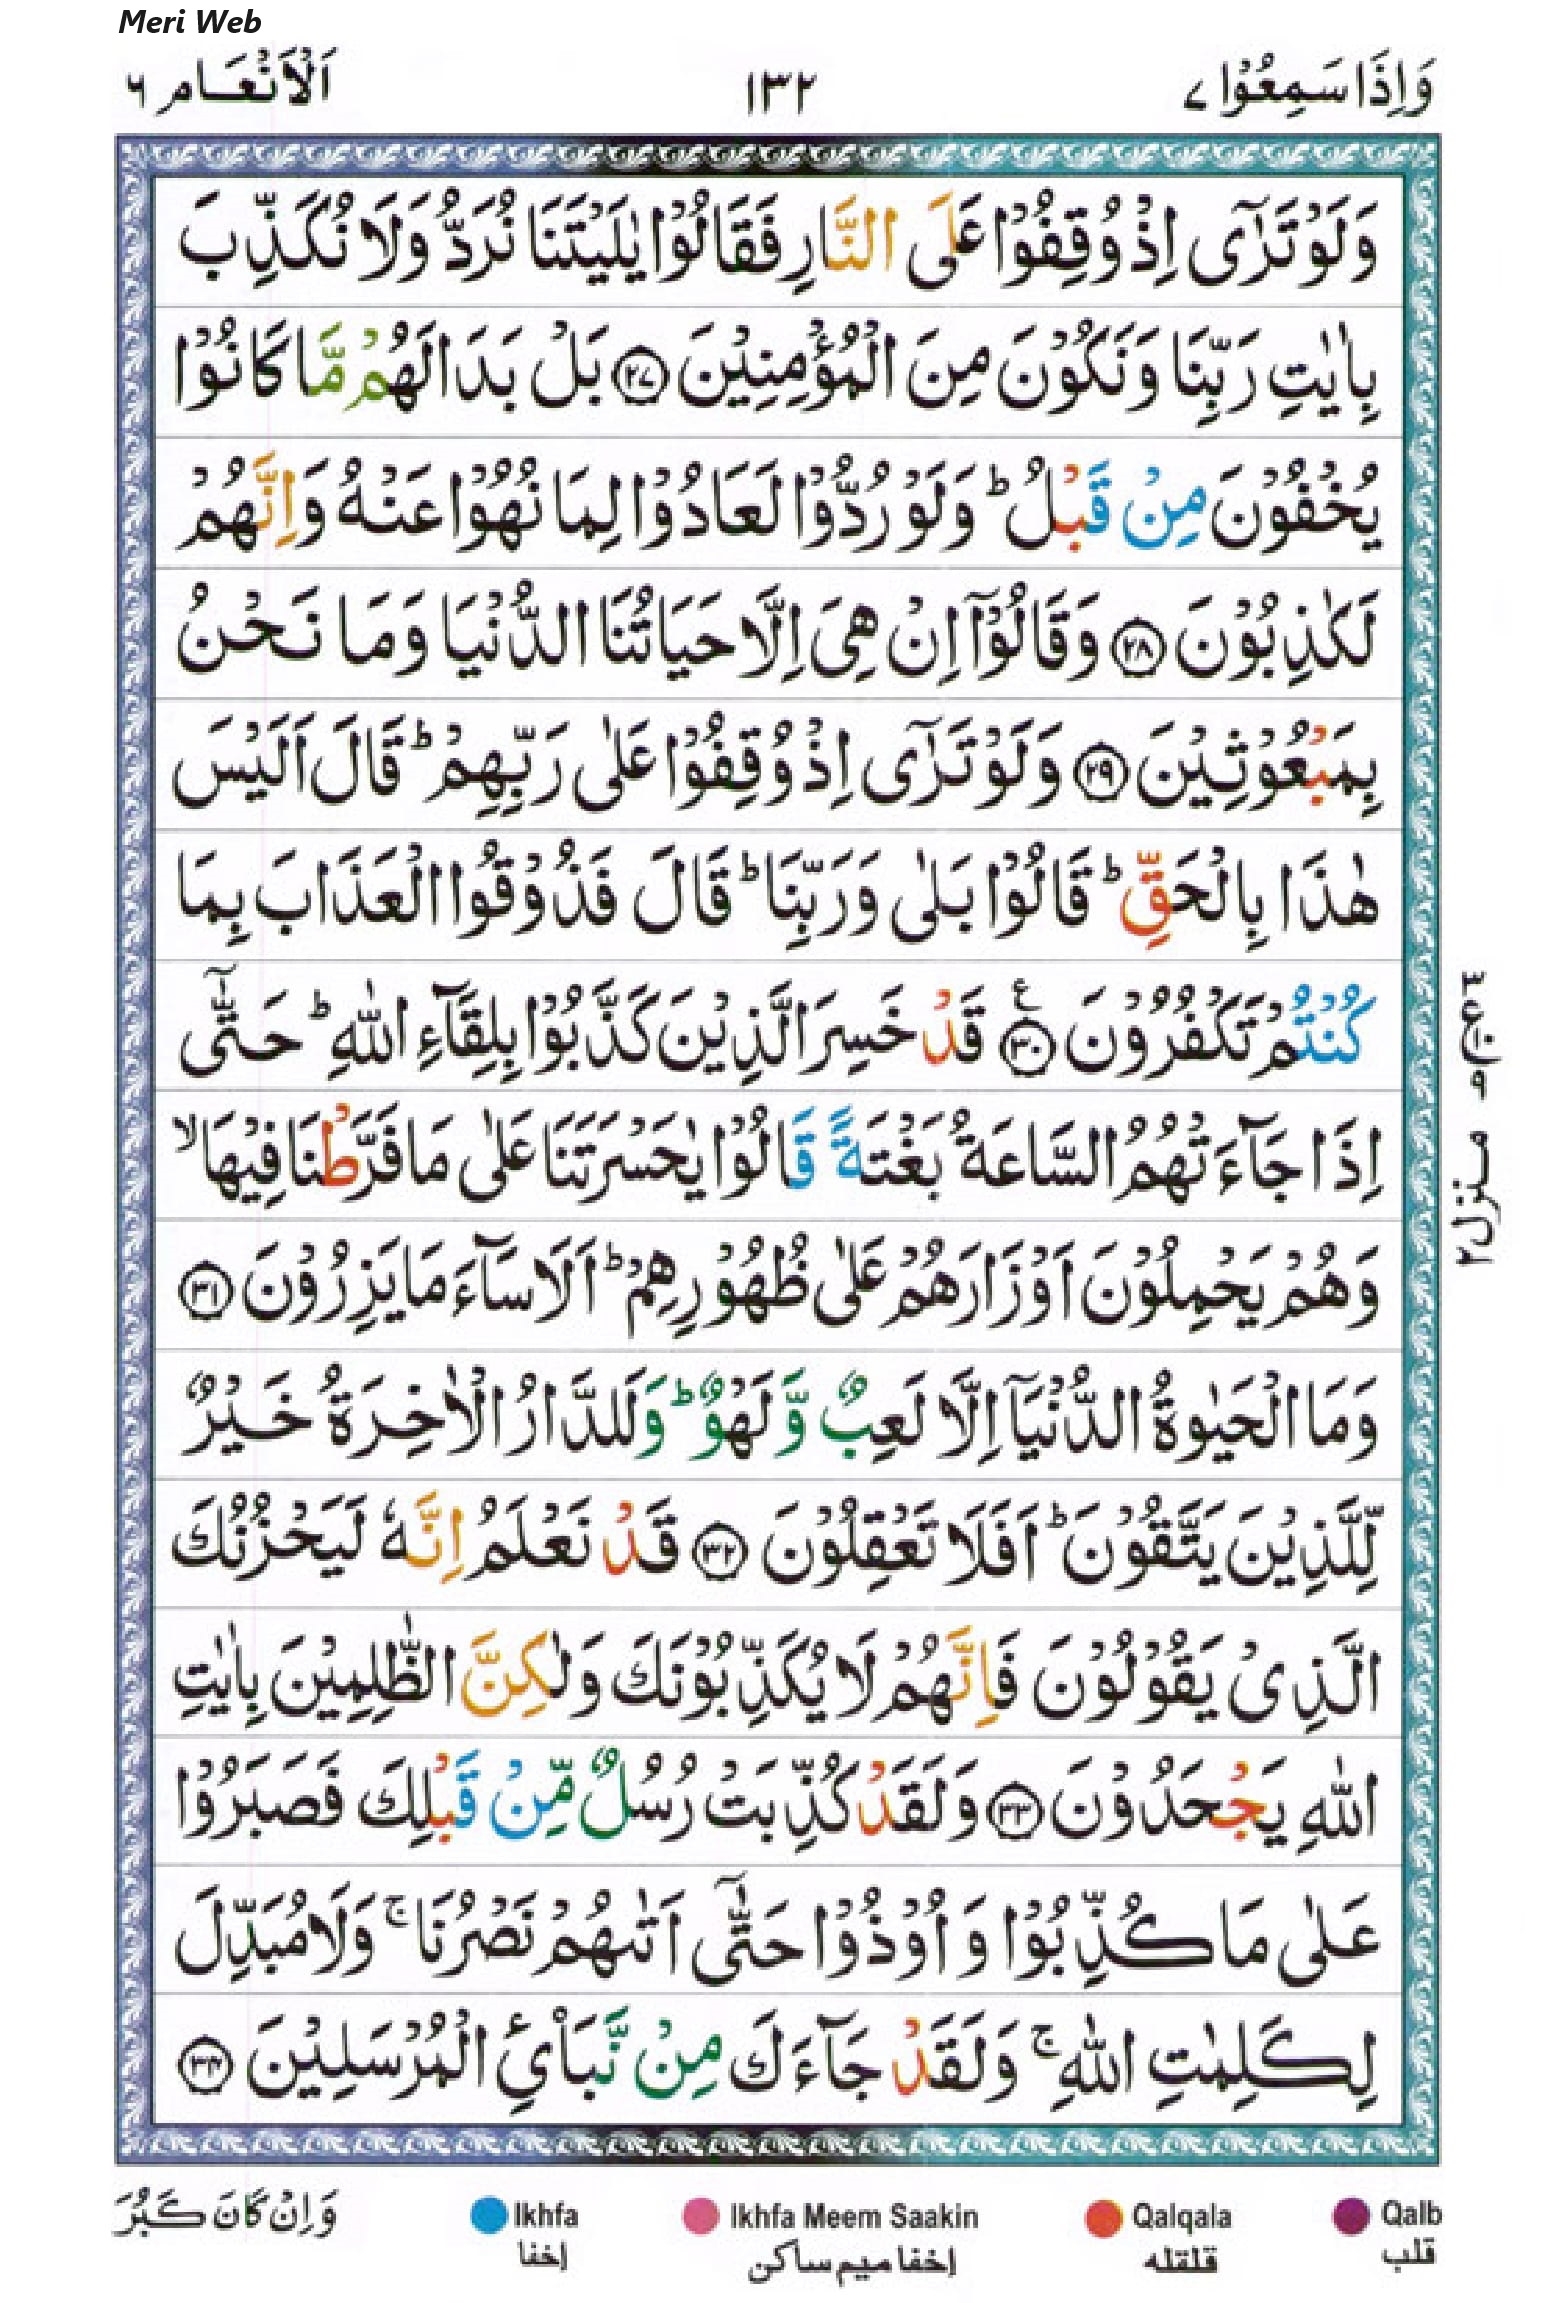 Meri Web
وَاِذَا سَمِعُوْا ٧ ١٣٢ اَلْاَنْعَام ٦
وَلَوْ تَرٰۤى اِذْ وُقِفُوْا عَلَى النَّارِ فَقَالُوْا يٰلَيْتَنَا نُرَدُّ وَلَا نُكَذِّبَ
بِاٰيٰتِ رَبِّنَا وَنَكُوْنَ مِنَ الْمُؤْمِنِيْنَ ﴿٢٧﴾ بَلْ بَدَا لَهُمْ مَّا كَانُوْا
يُخْفُوْنَ مِنْ قَبْلُ ؕ وَلَوْ رُدُّوْا لَعَادُوْا لِمَا نُهُوْا عَنْهُ وَاِنَّهُمْ
لَكٰذِبُوْنَ ﴿٢٨﴾ وَقَالُوْۤا اِنْ هِىَ اِلَّا حَيَاتُنَا الدُّنْيَا وَمَا نَحْنُ
بِمَبْعُوْثِيْنَ ﴿٢٩﴾ وَلَوْ تَرٰۤى اِذْ وُقِفُوْا عَلٰى رَبِّهِمْ ؕ قَالَ اَلَيْسَ
هٰذَا بِالْحَقِّ ؕ قَالُوْا بَلٰى وَرَبِّنَا ؕ قَالَ فَذُوْقُوا الْعَذَابَ بِمَا
كُنْتُمْ تَكْفُرُوْنَ ﴿٣٠﴾ ع قَدْ خَسِرَ الَّذِيْنَ كَذَّبُوْا بِلِقَآءِ اللّٰهِ ؕ حَتّٰۤى
اِذَا جَآءَتْهُمُ السَّاعَةُ بَغْتَةً قَالُوْا يٰحَسْرَتَنَا عَلٰى مَا فَرَّطْنَا فِيْهَا ۙ
وَهُمْ يَحْمِلُوْنَ اَوْزَارَهُمْ عَلٰى ظُهُوْرِهِمْ ؕ اَلَا سَآءَ مَا يَزِرُوْنَ ﴿٣١﴾
وَمَا الْحَيٰوةُ الدُّنْيَاۤ اِلَّا لَعِبٌ وَّلَهْوٌ ؕ وَلَلدَّارُ الْاٰخِرَةُ خَيْرٌ
لِّلَّذِيْنَ يَتَّقُوْنَ ؕ اَفَلَا تَعْقِلُوْنَ ﴿٣٢﴾ قَدْ نَعْلَمُ اِنَّهٗ لَيَحْزُنُكَ
الَّذِىْ يَقُوْلُوْنَ فَاِنَّهُمْ لَا يُكَذِّبُوْنَكَ وَلٰكِنَّ الظّٰلِمِيْنَ بِاٰيٰتِ
اللّٰهِ يَجْحَدُوْنَ ﴿٣٣﴾ وَلَقَدْ كُذِّبَتْ رُسُلٌ مِّنْ قَبْلِكَ فَصَبَرُوْا
عَلٰى مَا كُذِّبُوْا وَاُوْذُوْا حَتّٰۤى اَتٰىهُمْ نَصْرُنَا ۚ وَلَا مُبَدِّلَ
لِكَلِمٰتِ اللّٰهِ ۚ وَلَقَدْ جَآءَكَ مِنْ نَّبَاِئِ الْمُرْسَلِيْنَ ﴿٣٤﴾
منزل ٢
وَاِنْ كَانَ كَبُرَ
Ikhfa Ikhfa Meem Saakin Qalqala Qalb
إخفا إخفا ميم ساكن قلقله قلب